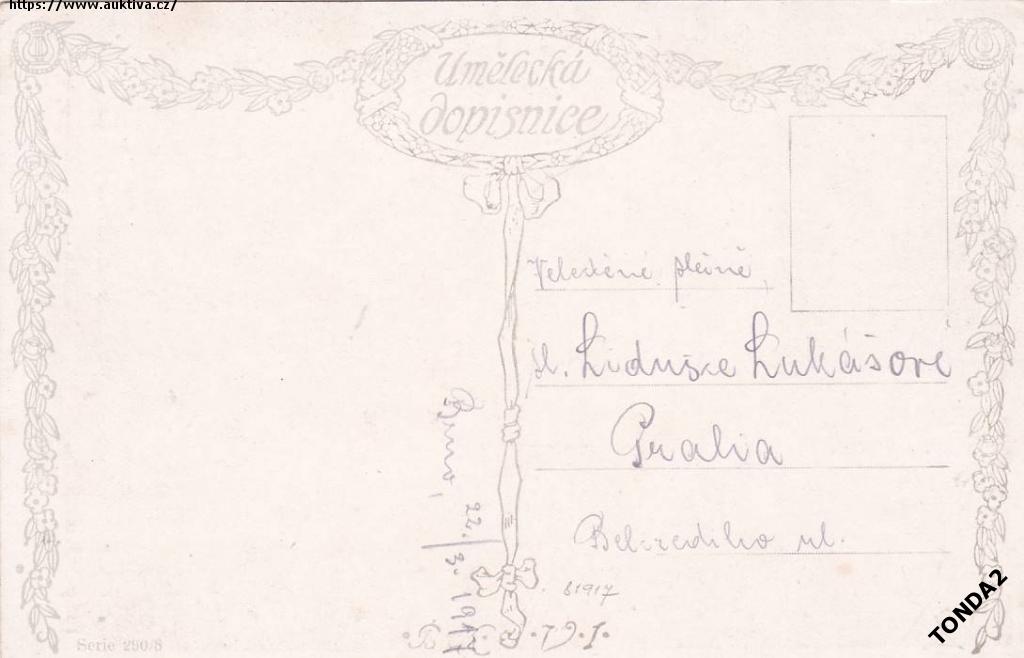 https://www.auktiva.cz/
Umělecká
dopisnice
sl. Lidušce Lukášové
Praha
Belcrediho ul.
Brno, 22./3. 1917
61917
Serie 290/8
TONDA2